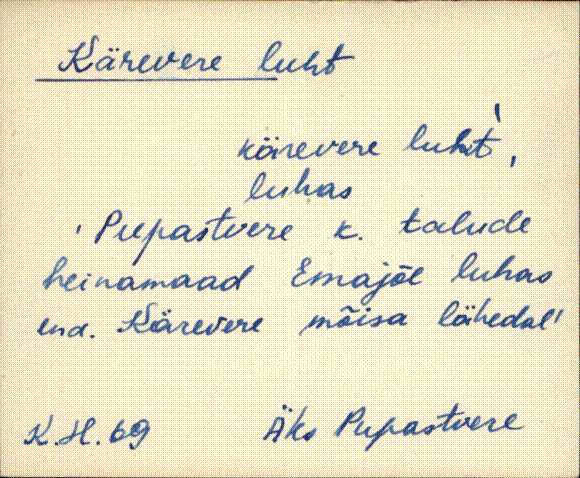 Kärevere luht
kärevere luht̀,
luhas
'Pupastvere k. talude
heinamaad Emajõe luhas
end. Kärevere mõisa lähedal'
K.H. 69 Äks Pupastvere